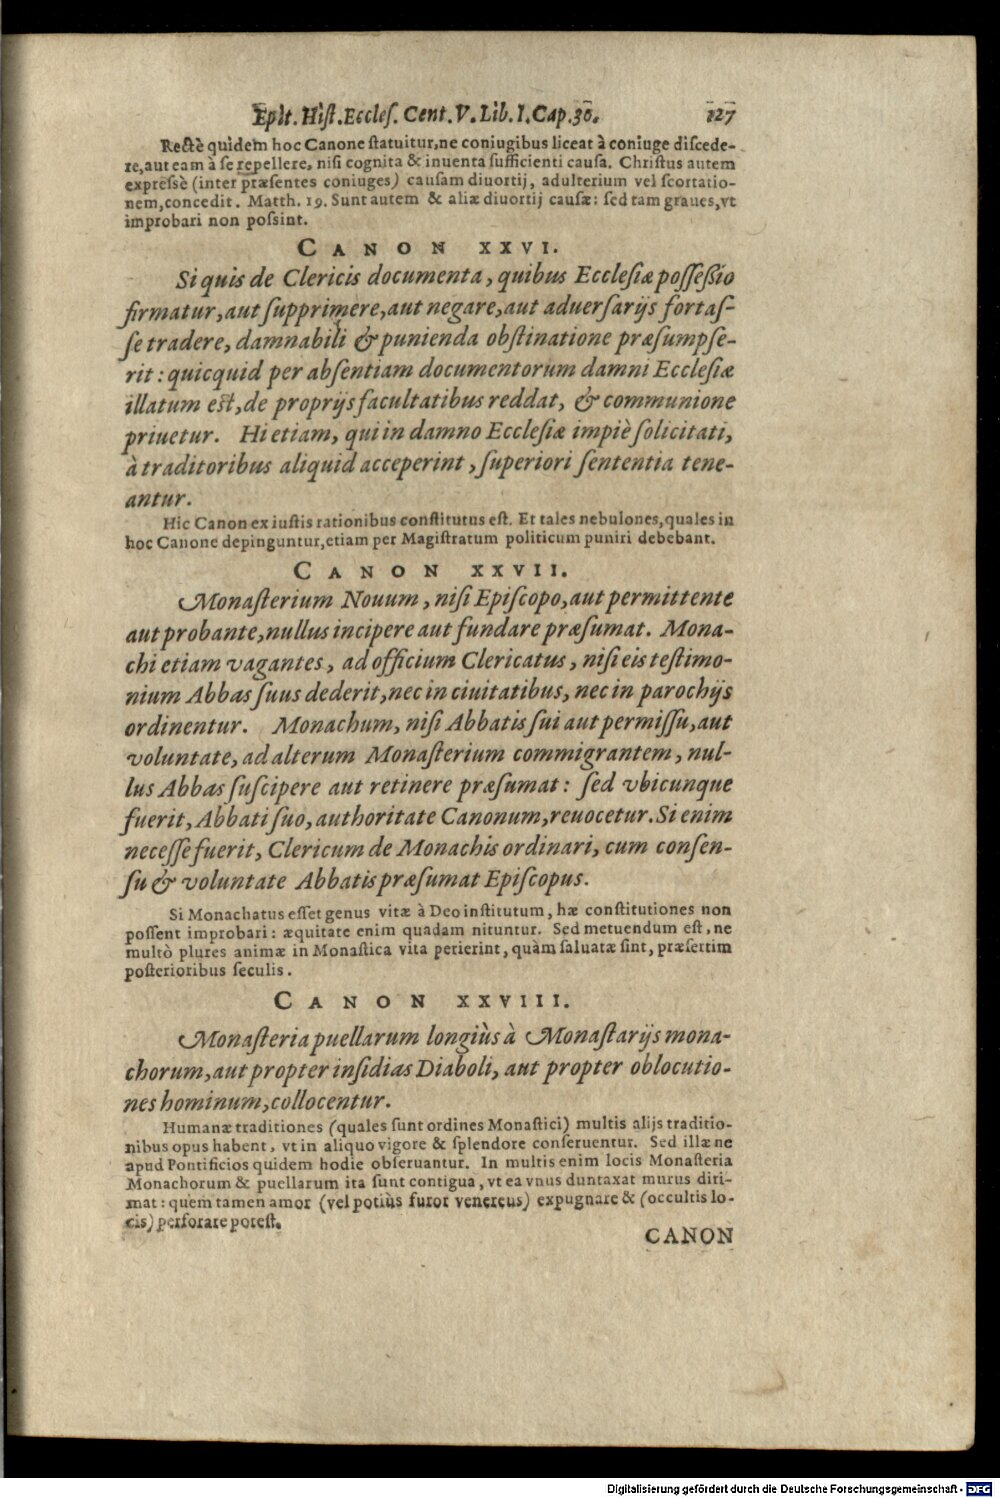 Epit. Hiſt. Eccleſ. Cent. V. Lib. I. Cap. 30. 127
Rectè quidem hoc Canone ſtatuitur, ne coniugibus liceat à coniuge diſcede-
re, aut eam à ſe repellere, niſi cognita & inuenta ſufficienti cauſa. Chriſtus autem
expreſsè (inter præſentes coniuges) cauſam diuortij, adulterium vel ſcortatio-
nem, concedit. Matth. 19. Sunt autem & aliæ diuortij cauſæ: ſed tam graues, vt
improbari non poſsint.
CANON XXVI.
Si quis de Clericis documenta, quibus Eccleſiæ poſſeßio
firmatur, aut ſupprimere, aut negare, aut aduerſarijs fortaſ-
ſe tradere, damnabili & punienda obſtinatione præſumpſe-
rit: quicquid per abſentiam documentorum damni Eccleſiæ
illatum eſt, de proprijs facultatibus reddat, & communione
priuetur. Hi etiam, qui in damno Eccleſiæ impiè ſolicitati,
à traditoribus aliquid acceperint, ſuperiori ſententia tene-
antur.
Hic Canon ex iuſtis rationibus conſtitutus eſt. Et tales nebulones, quales in
hoc Canone depinguntur, etiam per Magiſtratum politicum puniri debebant.
CANON XXVII.
Monaſterium Nouum, niſi Epiſcopo, aut permittente
aut probante, nullus incipere aut fundare præſumat. Mona-
chi etiam vagantes, ad officium Clericatus, niſi eis teſtimo-
nium Abbas ſuus dederit, nec in ciuitatibus, nec in parochijs
ordinentur. Monachum, niſi Abbatis ſui aut permiſſu, aut
voluntate, ad alterum Monaſterium commigrantem, nul-
lus Abbas ſuſcipere aut retinere præſumat: ſed vbicunque
fuerit, Abbati ſuo, authoritate Canonum, reuocetur. Si enim
neceſſe fuerit, Clericum de Monachis ordinari, cum conſen-
ſu & voluntate Abbatis præſumat Epiſcopus.
Si Monachatus eſſet genus vitæ à Deo inſtitutum, hæ conſtitutiones non
poſſent improbari: æquitate enim quadam nituntur. Sed metuendum eſt, ne
multò plures animæ in Monaſtica vita perierint, quàm ſaluatæ ſint, præſertim
poſterioribus ſeculis.
CANON XXVIII.
Monaſteria puellarum longiùs à Monaſtarijs mona-
chorum, aut propter inſidias Diaboli, aut propter oblocutio-
nes hominum, collocentur.
Humanæ traditiones (quales ſunt ordines Monaſtici) multis alijs traditio-
nibus opus habent, vt in aliquo vigore & ſplendore conſeruentur. Sed illæ ne
apud Pontificios quidem hodie obſeruantur. In multis enim locis Monaſteria
Monachorum & puellarum ita ſunt contigua, vt ea vnus duntaxat murus diri-
mat: quem tamen amor (vel potiùs furor venereus) expugnare & (occultis lo-
cis) perforare poteſt.
CANON
Digitalisierung gefördert durch die Deutsche Forschungsgemeinschaft - DFG